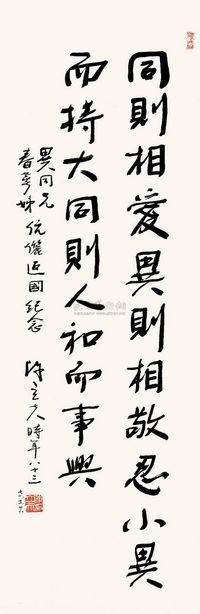 同則相愛異則相敬忍小異
而持大同則人和而事興
異同兄
春華姊 伉儷返國紀念
陳立夫時年八十三